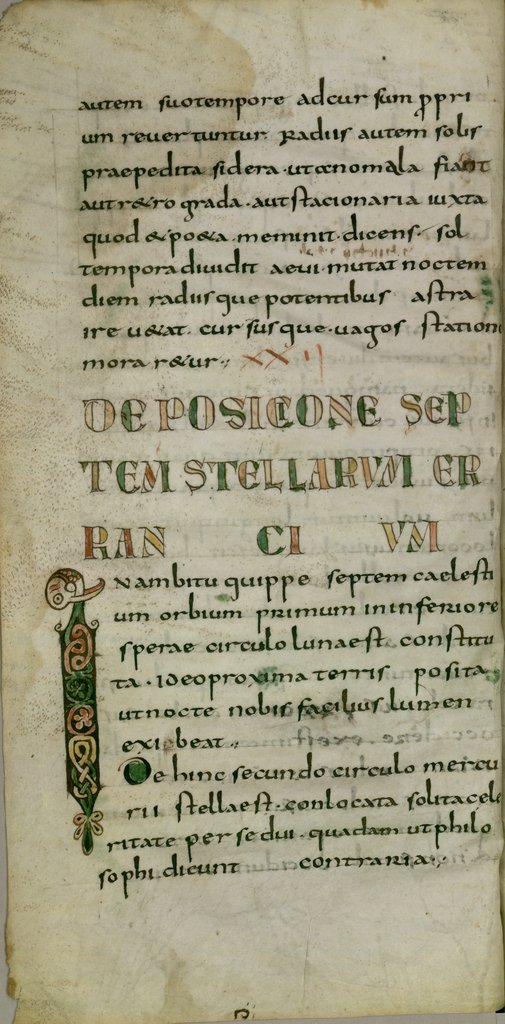 autem suotempore adcursum propri
um reuertuntur. Radiis autem solis
praepedita sidera. utanomala fiant
autretrograda. autstacionaria iuxta
quod etpoeta. meminit. dicens. sol
temporadiuidit aeui. mutat noctem
diem radiisquepotentibus astra
ire uetat. cursusque. uagos station
moraretur. XXII
DEPOSICIONE SEP
TEM STELLARUM ER
RAN CI UM
INambitu quippe septem caelesti
um orbium primum ininferiore
sperae circulo lunaest constitu
ta. ideoproxima terris posita
utnocte nobis facibus lumen
exibeat.
Dehinc secundo circulo mercu
rii stellaest. conlocata solitacele
ritate persedui. quadam utphilo
sophi. dicunt contraria.